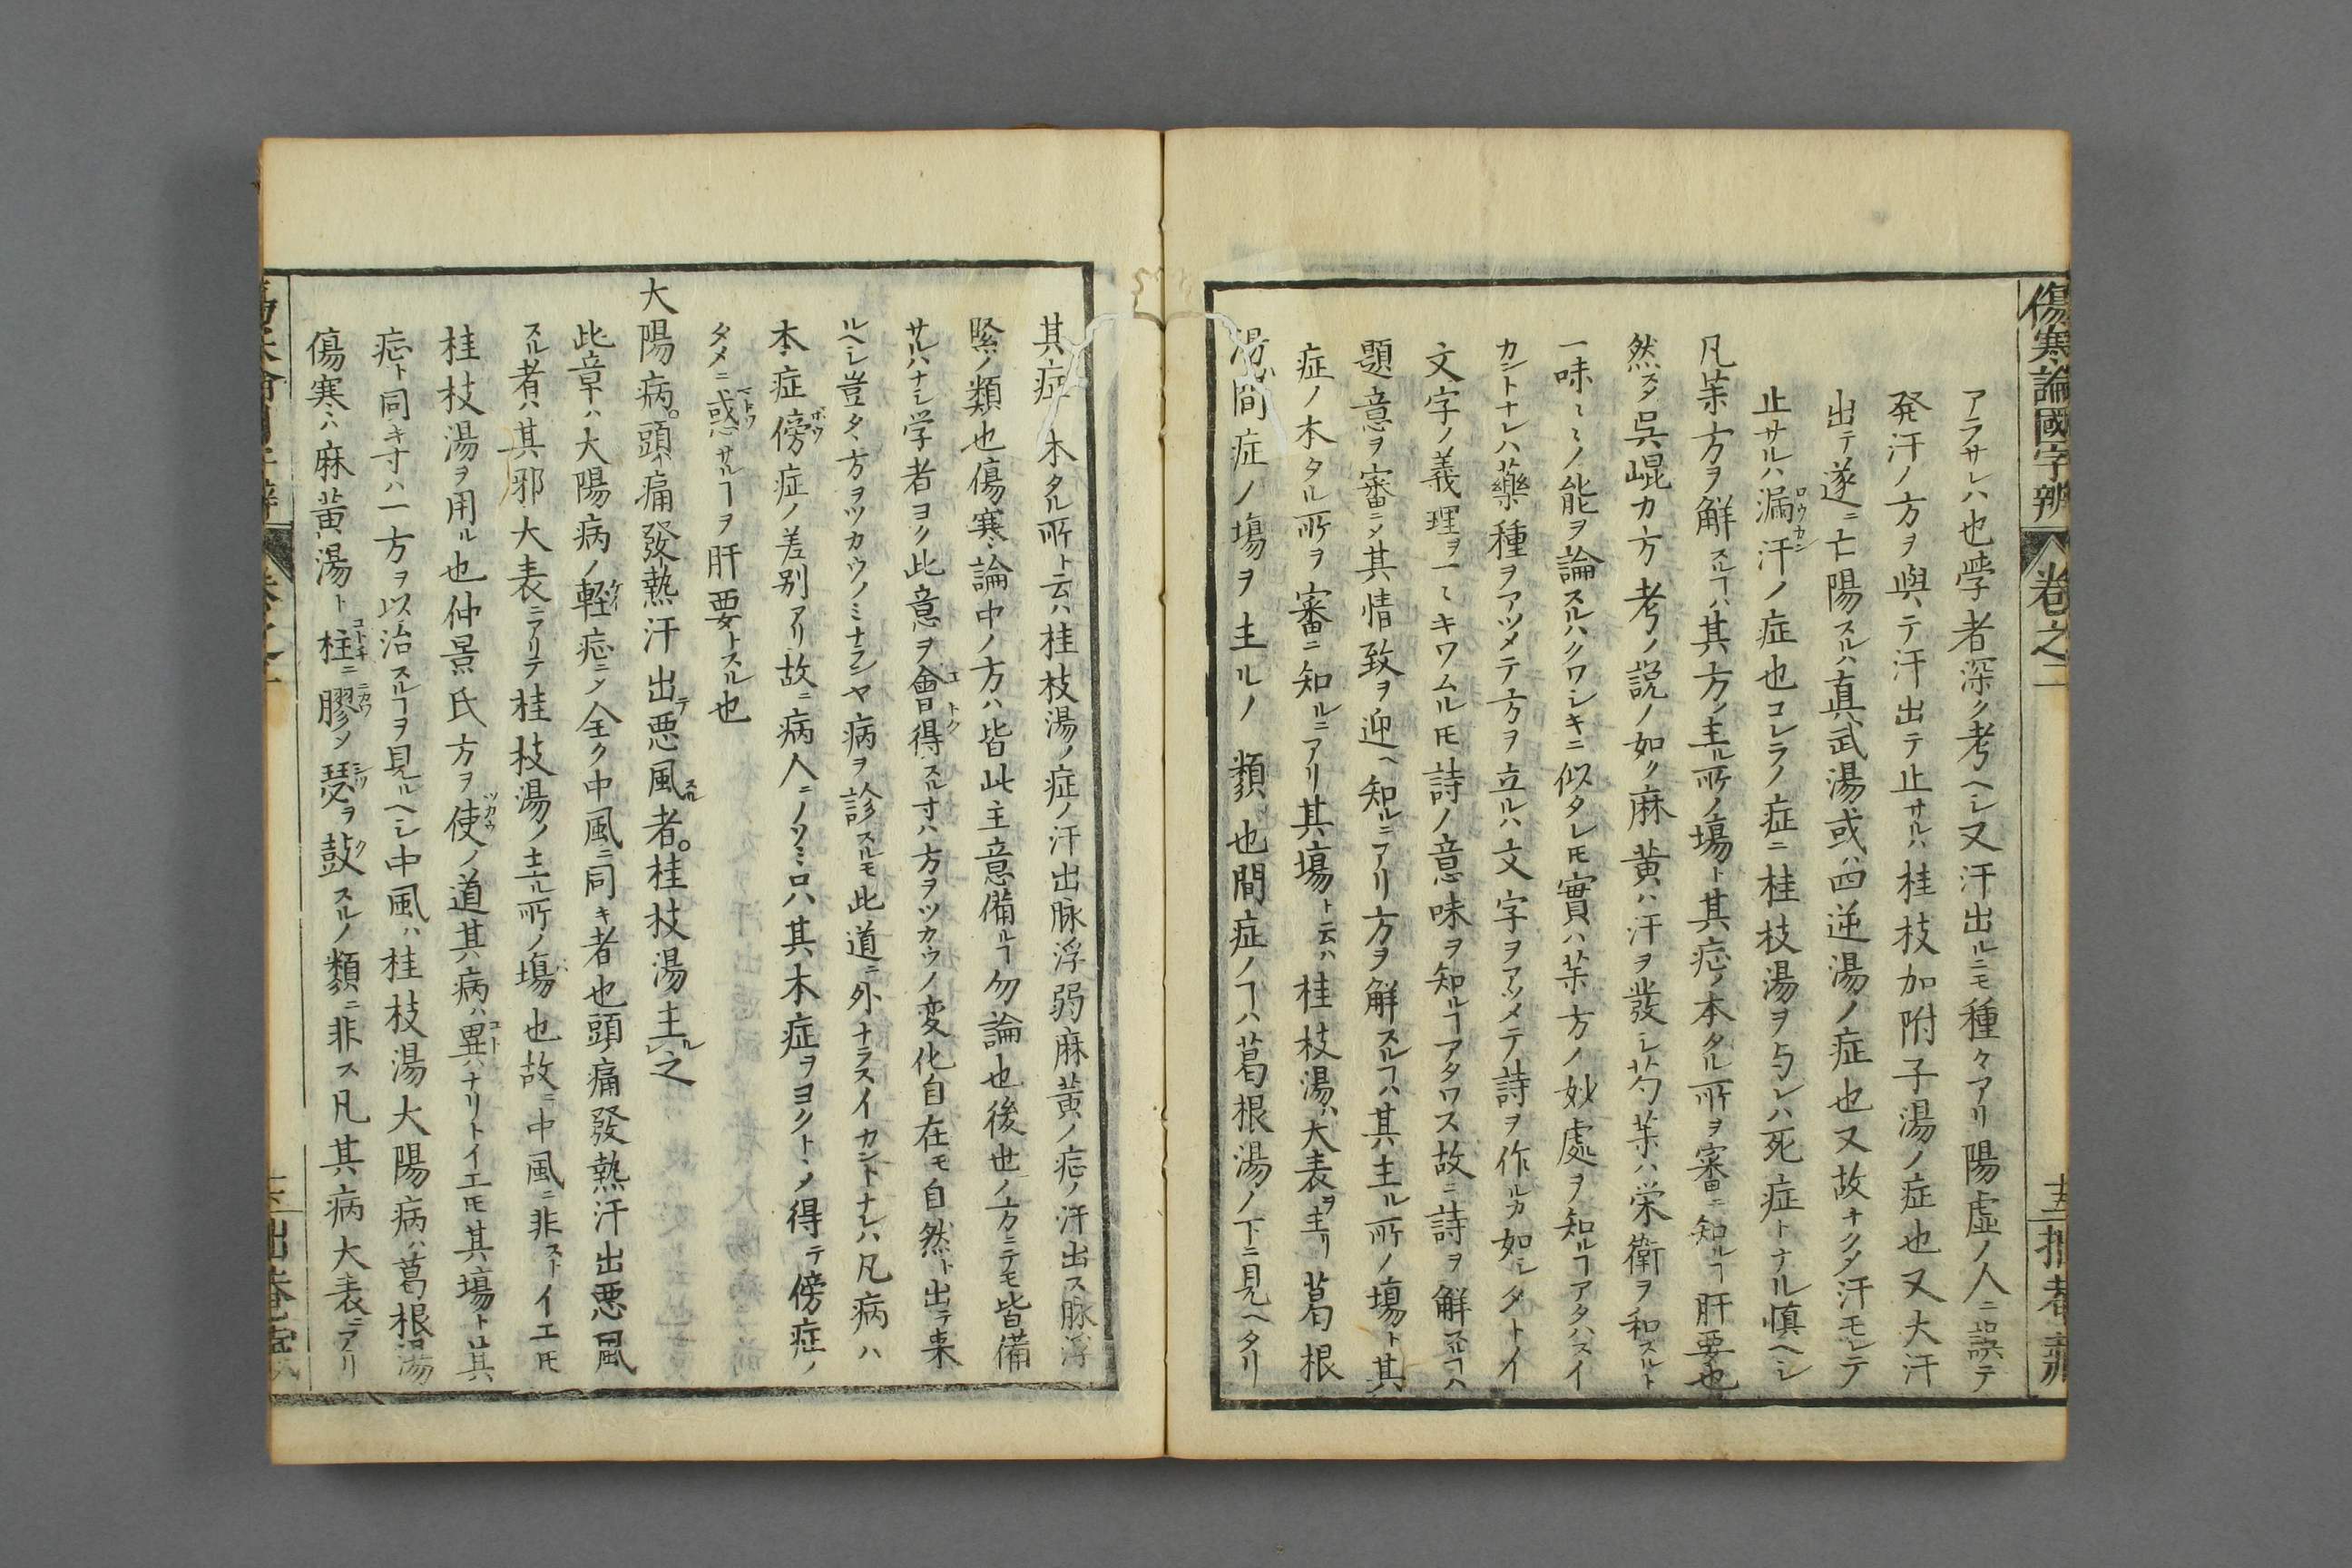 傷寒論國字辨 卷之二
アラサレハ也學者深ク考ヘシ又汗出ルニモ種々アリ陽虚ノ人ニ誤テ
発汗ノ方ヲ與ヘテ汗出テ止サルハ桂枝加附子湯ノ症也又大汗
出テ遂ニ亡陽スルハ真武湯或ハ四逆湯ノ症也又故ナクノ汗モレテ
止サルハ漏汗ノ症也コレラノ症ニ桂枝湯ヲ与レハ死症トナル慎ヘシ
凡茱方ヲ解スルヿハ其方ノ主ル所ノ塲ト其症ノ本タル所ヲ審ニ知ルヿ肝要也
然ルヲ呉崐カ方考ノ説ノ如ク麻黄ハ汗ヲ發シ芍茱ハ栄衛ヲ和スルト
一味〻ノ能ヲ論スルハクワシキニ似タレ𪜈實ハ茱方ノ妙處ヲ知ルヿアタハスイ
カントナレハ藥種ヲアツメテ方ヲ立ルハ文字ヲアツメテ詩ヲ作ルカ如シタトイ
文字ノ義理ヲ一〻キワムル𪜈詩ノ意味ヲ知ルヿアタワス故ニ詩ヲ解スルヿハ
題意ヲ審ニノ其情致ヲ迎ヘ知ルニアリ方ヲ解スルヿハ其主ル所ノ塲ト其
症ノ本タル所ヲ審ニ知ルニアリ其塲ト云ハ桂枝湯ハ大表ヲ主リ葛根
湯ハ間症ノ塲ヲ主ルノ類也間症ノヿハ葛根湯ノ下ニ見ヘタリ
其症ノ本タル所ト云ハ桂枝湯ノ症ノ汗出脉浮弱麻黄ノ症ノ汗出ス脉浮
緊ノ類也傷寒論中ノ方ハ皆此主意備ルヿ勿論也後世ノ方ニテモ皆備
サルハナシ学者ヨク此意ヲ會得スル寸ハ方ヲツカウノ変化自在モ自然ト出テ来
ルヘシ豈タヽ方ヲツカウノミナランヤ病ヲ診スルモ此道ニ外ナラスイカントナレハ凡病ハ
本症傍症ノ差別アリ故ニ病人ニノソミロハ其本症ヲヨクトヽノ得テ傍症ノ
タメニ惑サルヿヲ肝要トスル也
大陽病。頭痛發熱汗出テ悪風スル者。桂枝湯主ル之
此章ハ大陽病ノ軽症ニノ全ク中風ニ同キ者也頭痛發熱汗出悪風
スル者ハ其邪大表ニアリテ桂枝湯ノ主ル所ノ塲也故ニ中風ニ非ストイエ𪜈
桂枝湯ヲ用ル也仲景氏方ヲ使ノ道其病ハ異ナリトイエ𪜈其塲ト其
症ト同キ寸ハ一方ヲ以治スルヿヲ見ルヘシ中風ハ桂枝湯大陽病ハ葛根湯
傷寒ハ麻黄湯ト柱ニ膠ノ瑟ヲ鼓スルノ類ニ非ス凡其病大表ニアリ